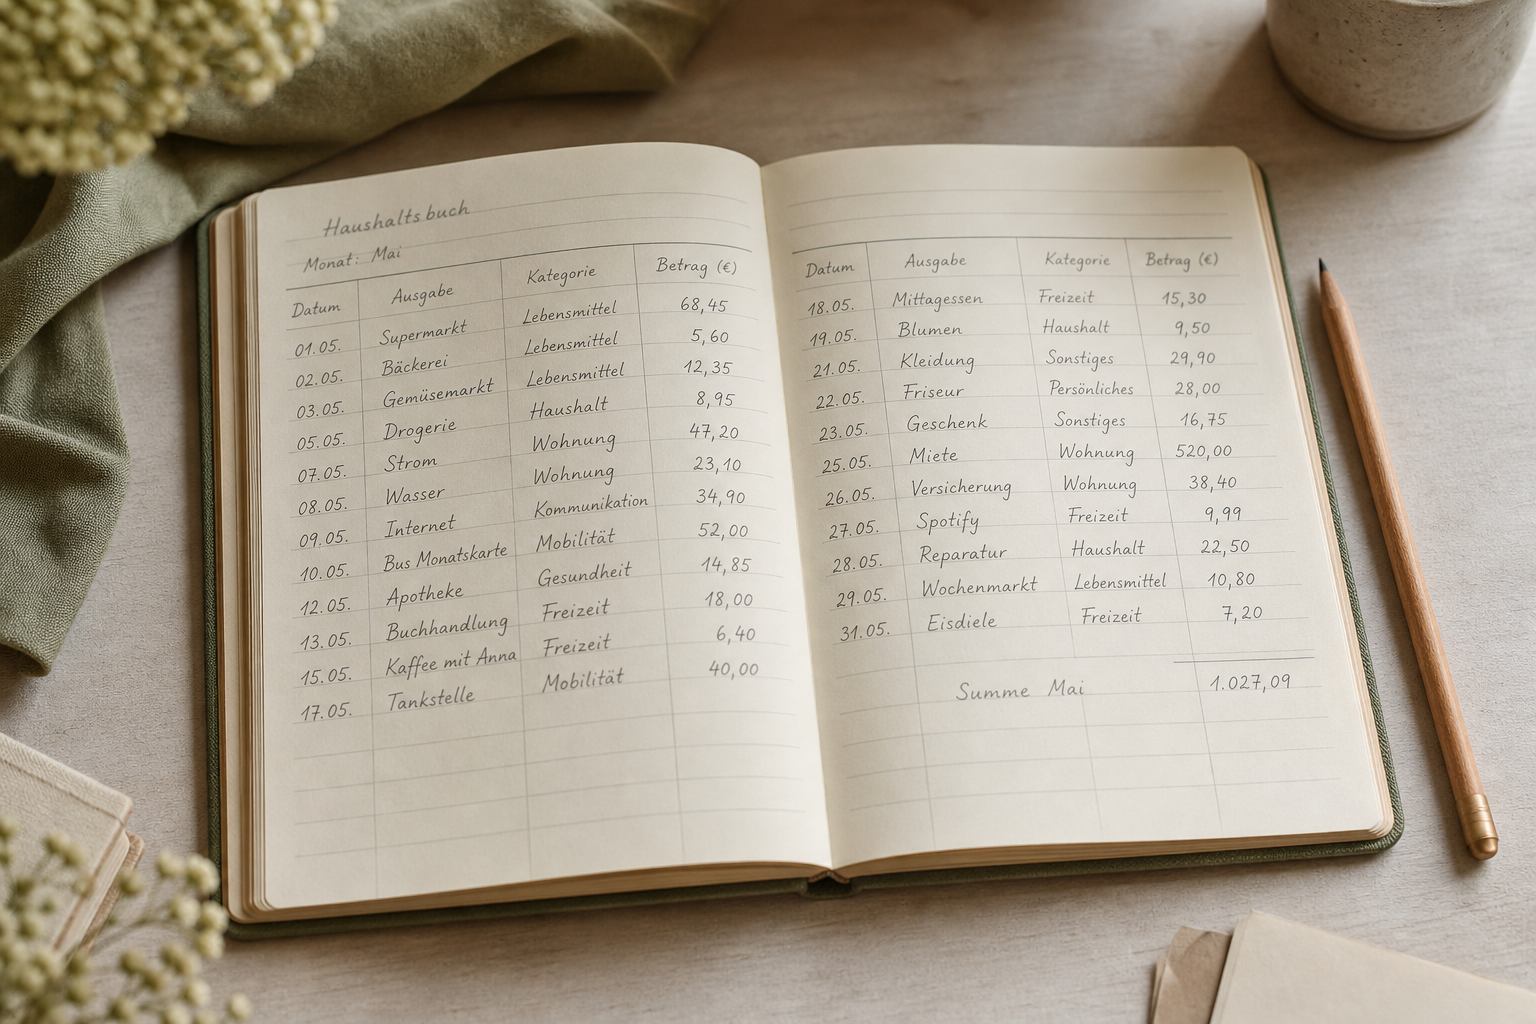 Haushaltsbuch
Monat: Mai
Datum Ausgabe Kategorie Betrag (€)
01.05. Supermarkt Lebensmittel 68,45
02.05. Bäckerei Lebensmittel 5,60
03.05. Gemüsemarkt Lebensmittel 12,35
05.05. Drogerie Haushalt 8,95
07.05. Strom Wohnung 47,20
08.05. Wasser Wohnung 23,10
09.05. Internet Kommunikation 34,90
10.05. Bus Monatskarte Mobilität 52,00
12.05. Apotheke Gesundheit 14,85
13.05. Buchhandlung Freizeit 18,00
15.05. Kaffee mit Anna Freizeit 6,40
17.05. Tankstelle Mobilität 40,00
Datum Ausgabe Kategorie Betrag (€)
18.05. Mittagessen Freizeit 15,30
19.05. Blumen Haushalt 9,50
21.05. Kleidung Sonstiges 29,90
22.05. Friseur Persönliches 28,00
23.05. Geschenk Sonstiges 16,75
25.05. Miete Wohnung 520,00
26.05. Versicherung Wohnung 38,40
27.05. Spotify Freizeit 9,99
28.05. Reparatur Haushalt 22,50
29.05. Wochenmarkt Lebensmittel 10,80
31.05. Eisdiele Freizeit 7,20
Summe Mai 1.027,09